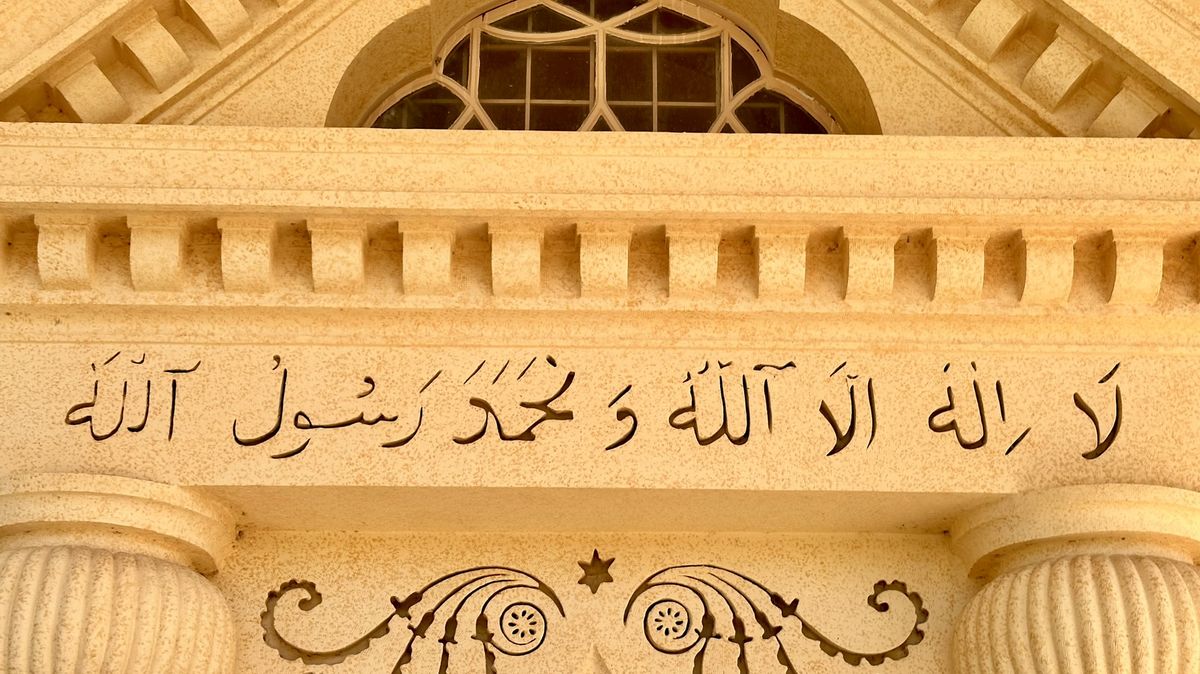 لا اله الا الله و محمد رسول الله